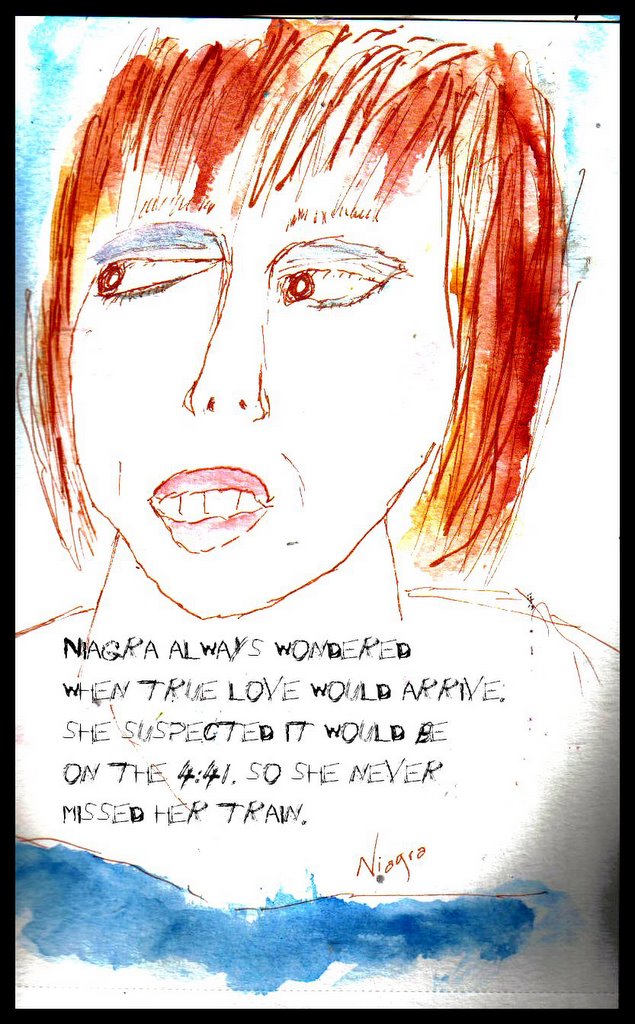 NIAGRA ALWAYS WONDERED
WHEN TRUE LOVE WOULD ARRIVE.
SHE SUSPECTED IT WOULD BE
ON THE 4:41. SO SHE NEVER
MISSED HER TRAIN.
Niagra